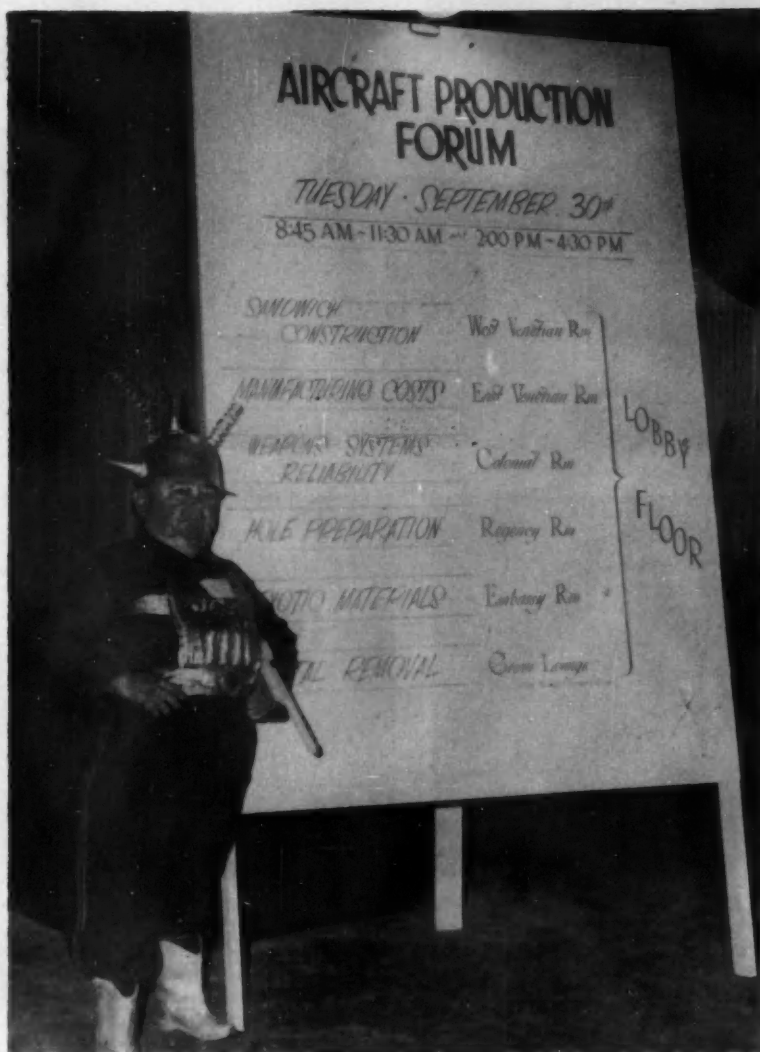 AIRCRAFT PRODUCTION
FORUM
TUESDAY · SEPTEMBER 30th
8:45 AM - 11:30 AM — 2:00 PM - 4:30 PM
SANDWICH
CONSTRUCTION West Venetian Rm
MANUFACTURING COSTS East Venetian Rm
WEAPONS SYSTEMS
RELIABILITY Colonial Rm
HOLE PREPARATION Regency Rm
EXOTIC MATERIALS Embassy Rm
TAL REMOVAL Lounge
LOBBY
FLOOR